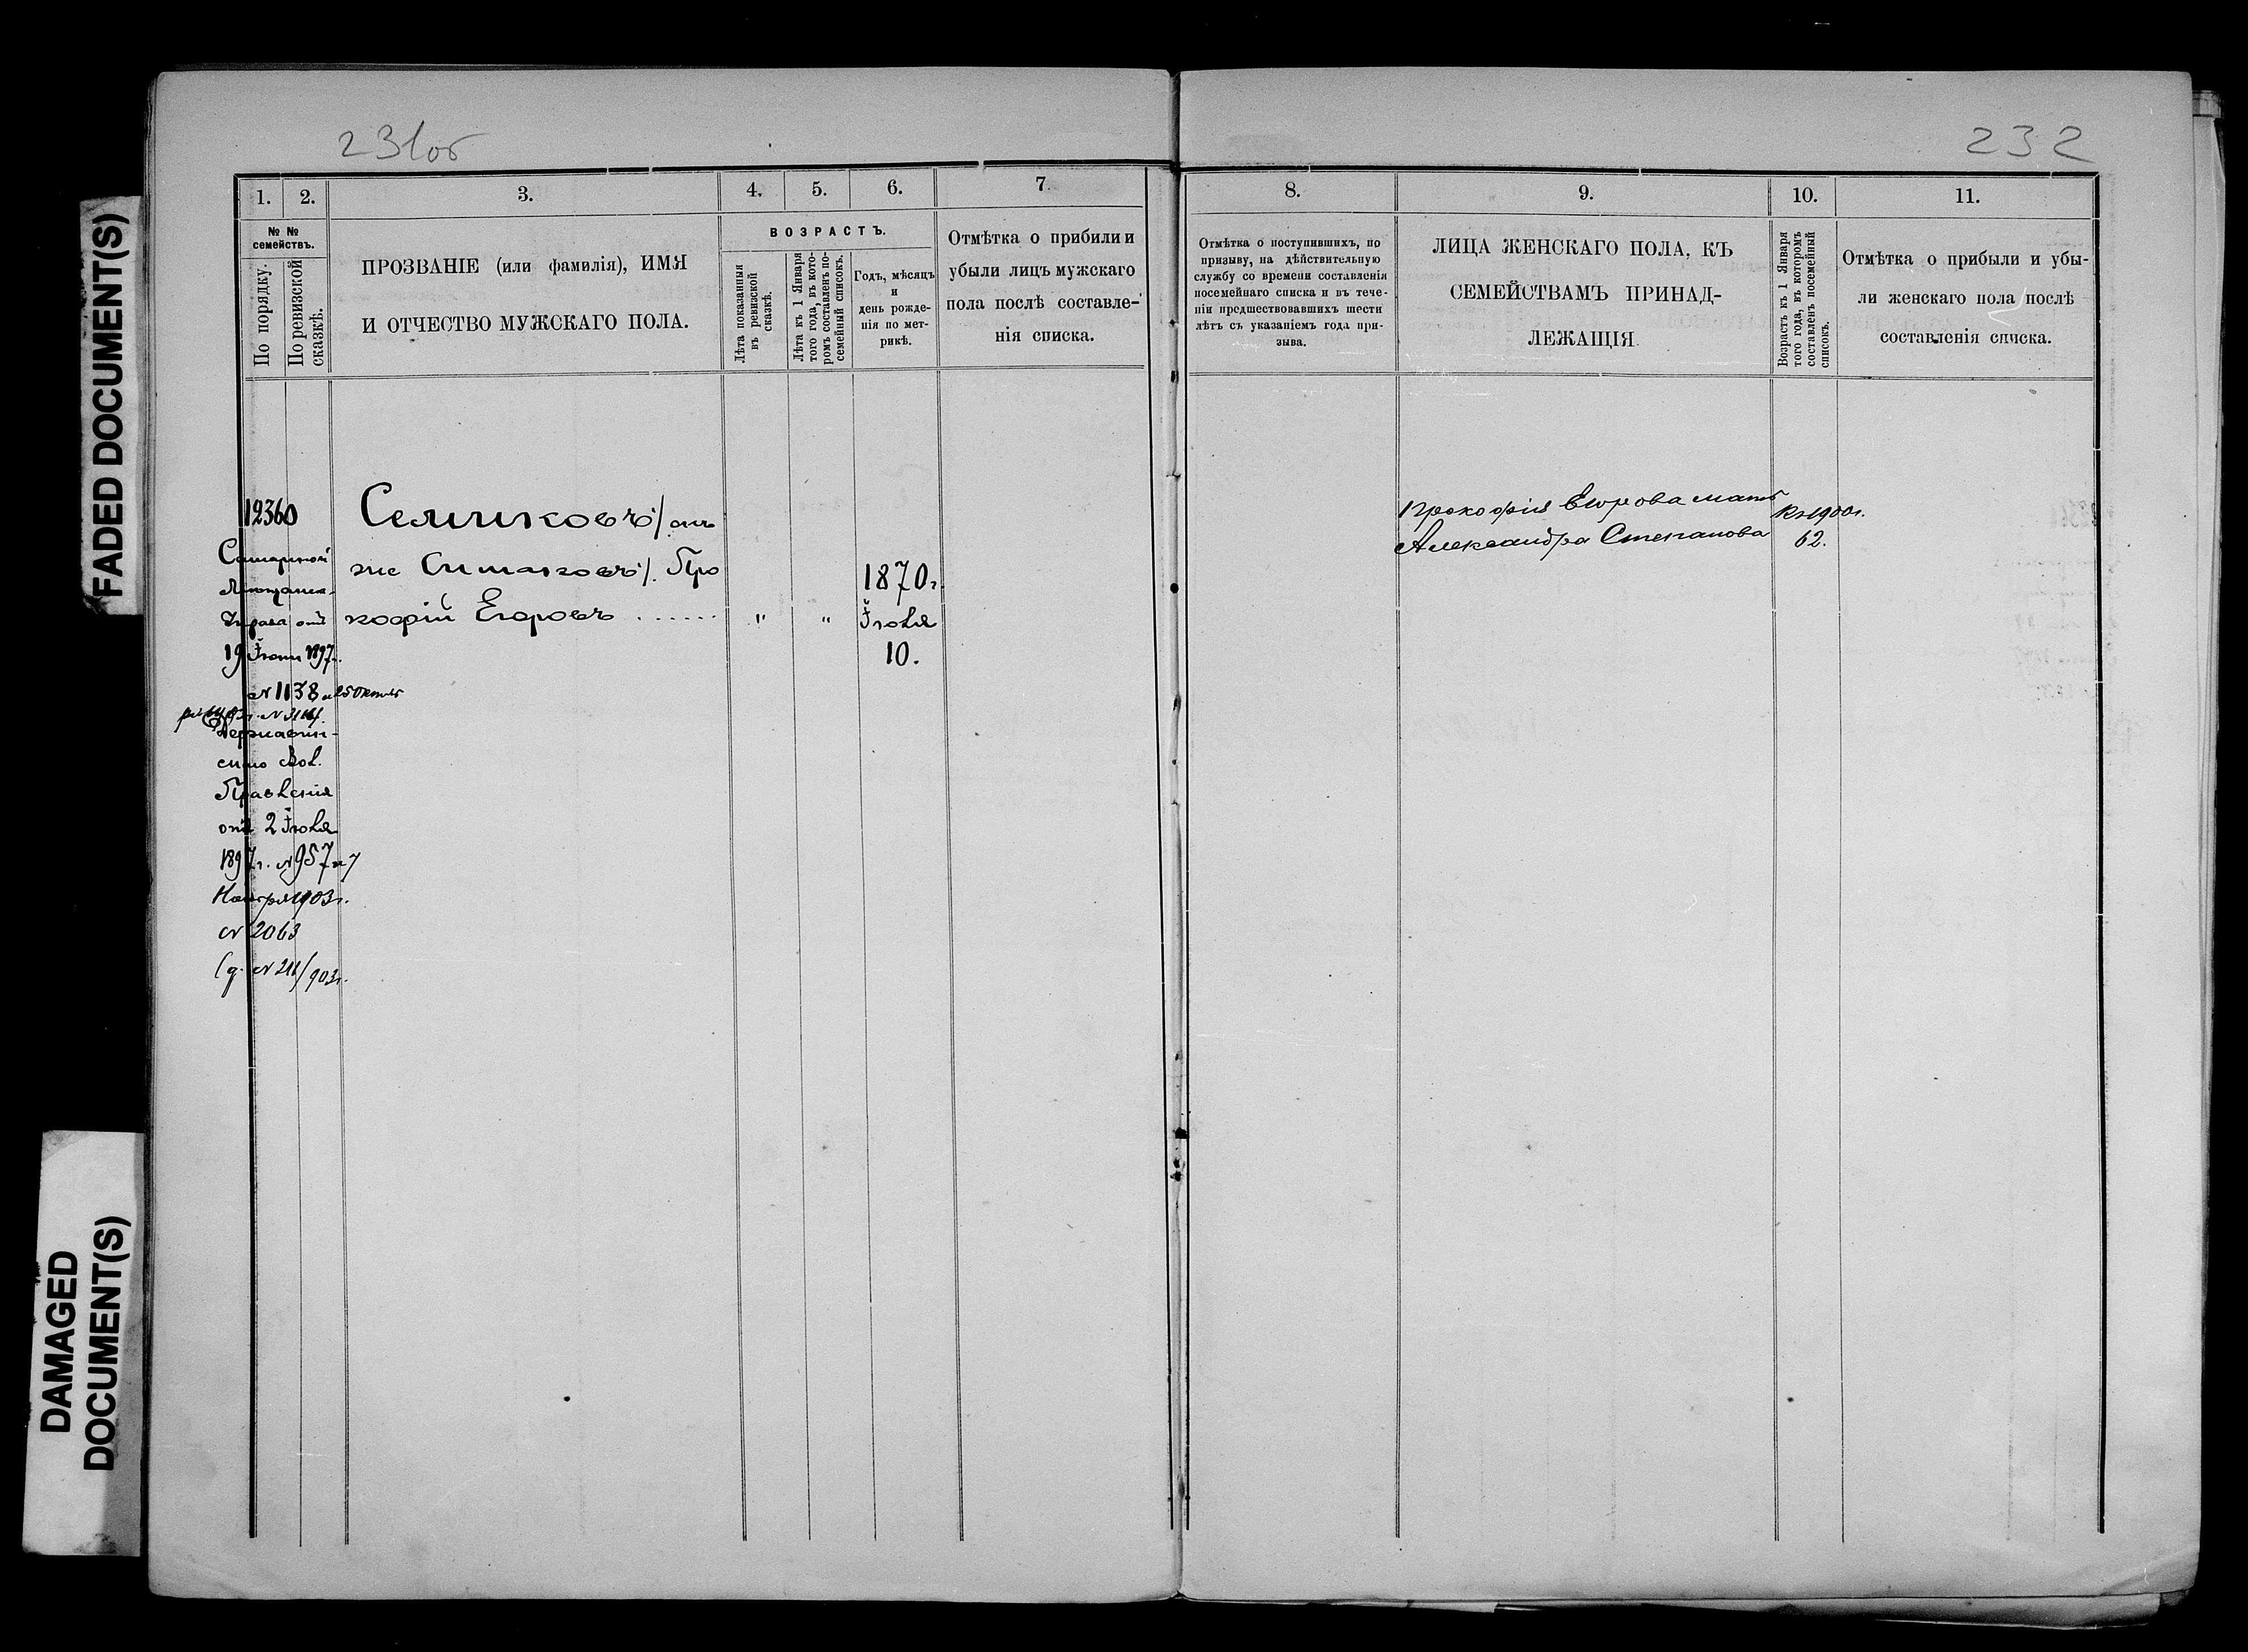 FADED DOCUMENT(S)
DAMAGED
DOCUMENT(S)
231об
1.
2.
3.
4.
5.
6.
7
№ №
семействъ.
По порядку.
По ревизской
сказкѣ.
ПРОЗВАНІЕ (или фамилія), ИМЯ
И ОТЧЕСТВО МУЖСКАГО ПОЛА.
ВОЗРАСТЪ.
Лѣта показанныя
въ ревизской
сказкѣ.
Лѣта къ 1 Января
того года, въ кото-
ромъ составленъ по-
семейный списокъ.
Годъ, мѣсяцъ
и
день рожде-
нія по мет-
рикѣ.
Отмѣтка о прибыли и
убыли лицъ мужскаго
пола послѣ составле-
нія списка.
12360
Самарской
Мѣщанск.
Управа отъ
19 Іюня 1897г.
№ 1138 и 25 Октяб
ря 1903г. № 3114.
Державин-
скаго Вол.
Правленія
отъ 2 Іюля
1897г. № 957 и 7
Ноября 1903г.
№ 2063
(д. № 211/903г.
Семиковъ/онъ
же Симаковъ/. Про
кофій Егоровъ ......
"
"
1870г.
Іюля
10.
232
8.
9.
10.
11.
Отмѣтка о поступившихъ, по
призыву, на дѣйствительную
службу со времени составленія
посемейнаго списка и въ тече-
ніи предшествовавшихъ шести
лѣтъ съ указаніемъ года при-
зыва.
ЛИЦА ЖЕНСКАГО ПОЛА, КЪ
СЕМЕЙСТВАМЪ ПРИНАД-
ЛЕЖАЩІЯ
Возрастъ къ 1 Января
того года, въ которомъ
составленъ посемейный
списокъ.
Отмѣтка о прибыли и убы-
ли женскаго пола послѣ
составленія списка.
Прокофія Егорова мать
Александра Степанова
Къ 1900г.
62.